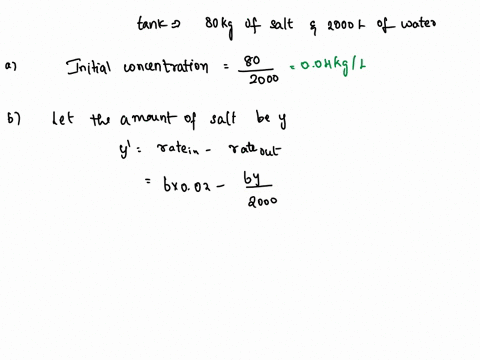 tank => 80kg of salt & 2000 L of water
a) Initial concentration = 80/2000 = 0.04kg/L
b) Let the amount of salt be y
y' = rate in - rate out
= 6x0.02 - 6y/2000